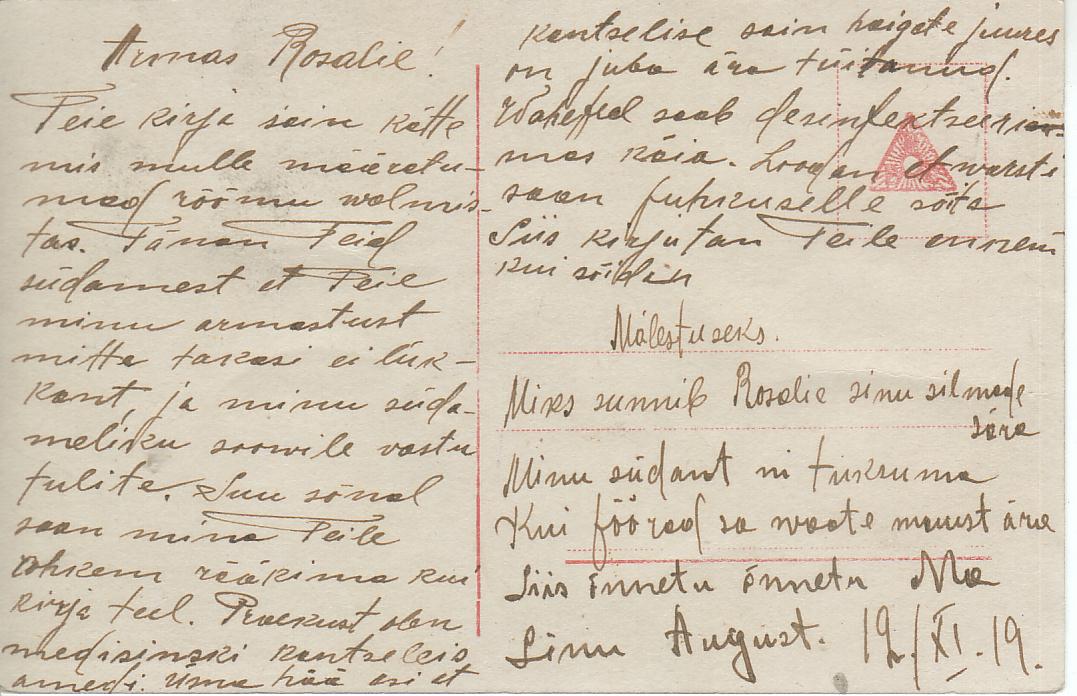 Armas Rosalie!
Teie kirja sain kätte
mis mulle määratu-
mad rõõmu walmis-
tas. Tänan Teid
südamest et Teie
minu armastust
mitte takasi ei lük-
kant, ja minu süda-
meliku soowile vastu
tulite. Suu sõnal
saan mina Teile
rohkem rääkima kui
kirja teel. Praekust olen
medisinski kantseleis
ametis. Üsna hää asi et
kantselise sain haigete juures
on juba ära tüitanud.
Wahepeal saab desinfektseeri-
mas käia. Loodan et warsti
saan puhkuselle sõita
Siis kirjutan Teile ennem
kui sõidan
Mälestuseks.
Miks sunnib Rosalie sinu silmade
sära
Minu südant ni tuksuma
Kui pöörad sa waate muust ära
Siis õnnetu õnnetu Ma
Sinu August. 12./XI.19.